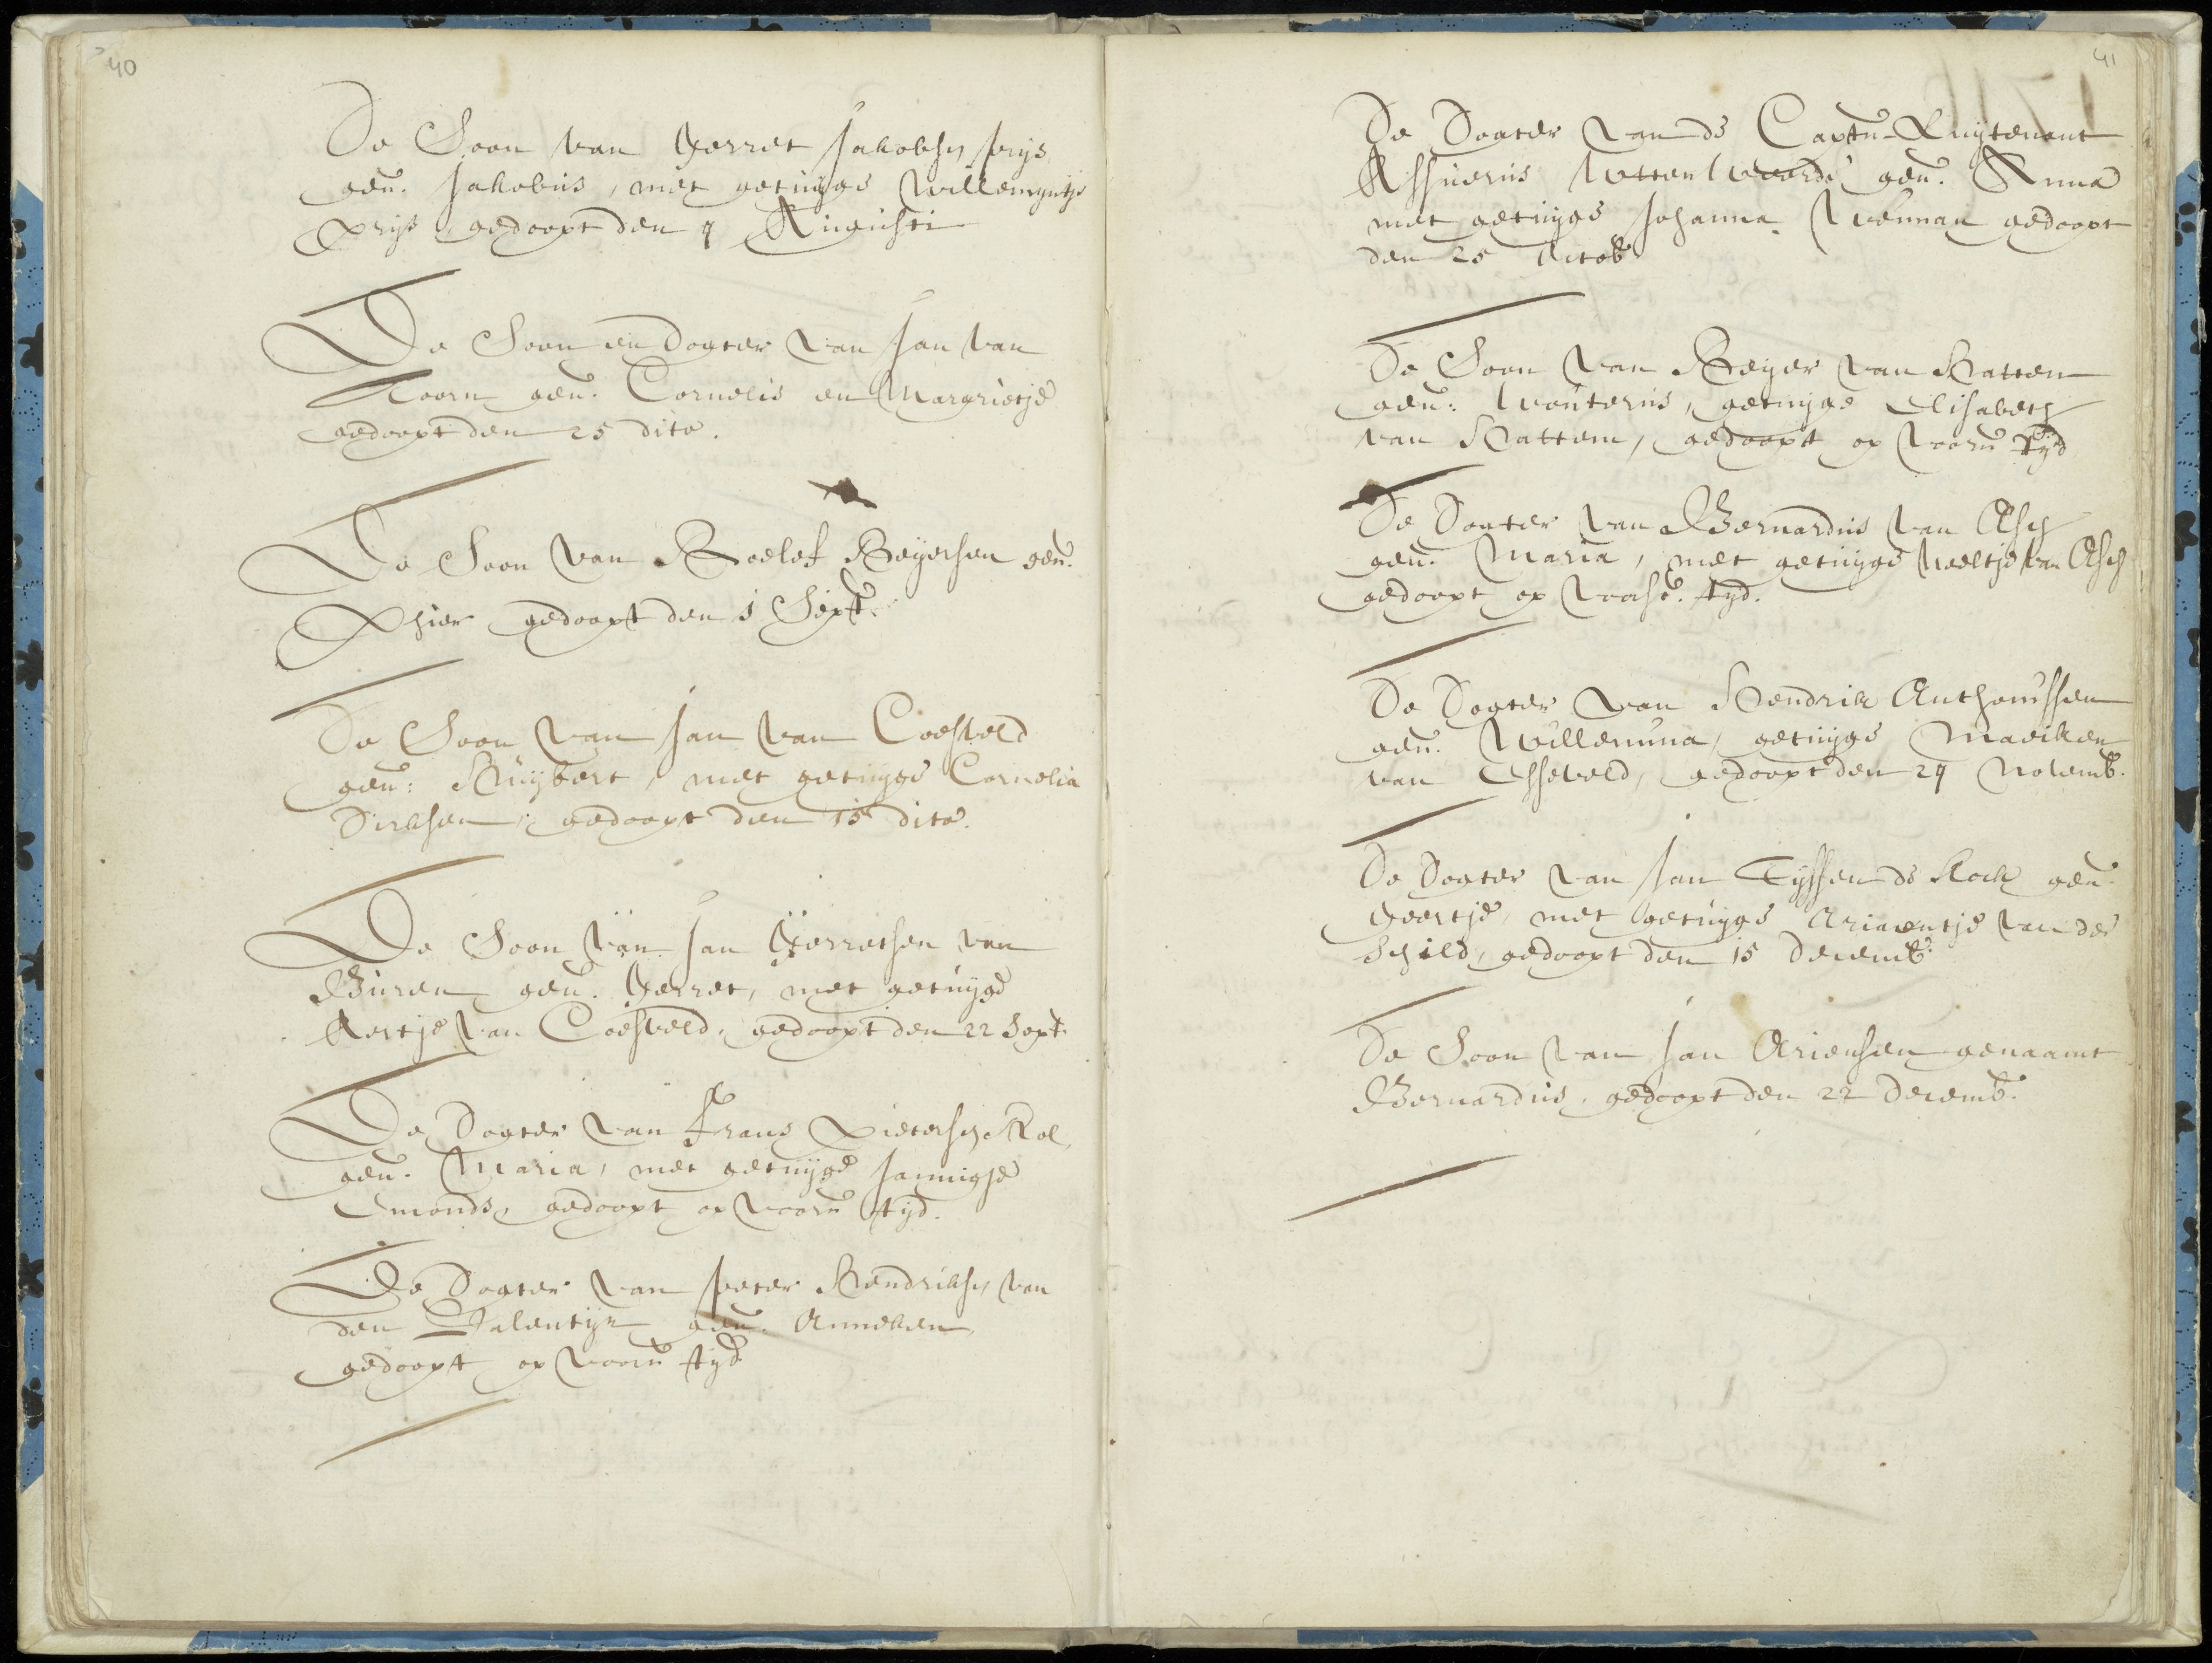 40
De Soon van Gerret Jakobsz Prys
gen. Jakobus, met getuyge Willemyntje
Prys gedoopt den 4 Augusti
De Soon en Dogter van Jan van
Hoorn gen. Cornelis en Margrietje
gedoopt den 25 dito.
De Soon van Roelof Reyersen gen.
gedoopt den 1 Sept.
De Soon van Jan van Coesveld
gen: Huybert, met getuyge Cornelia
Dirksen, gedoopt den 15 dito.
De Soon van Jan Gerretsen van
Buren gen. Gerret, met getuyge
Aertje van Coesveld, gedoopt den 22 Sept.
De Dogter van Frans Pietersz Kol,
gen. Maria, met getuyge Jannigje
Emonds, gedoopt op voorn tyd.
De Dogter van Peter Hendriksz van
den Valentyn gen. Anneken,
gedoopt op voorn tyd
41
De Dogter van de Captn-Luytenant
Assuerus Wttenweerde gen. Anna
met getuyge Johanna Weman gedoopt
den 25 Octob
De Soon van Reyer van Hattem
gen: Wouterus, getuyge Elisabeth
van Hattem, gedoopt op voorn tyd
De Dogter van Bernardus van Esch
gen. Maria, met getuyge Neeltje van Esch
gedoopt op voorsc. tyd.
De Dogter van Hendrik Anthonissen
gen. Willemina, getuyge Maeiken
van Esseveld, gedoopt den 24 Novemb.
De Dogter van Jan Tyssen de Kock gen.
Geertje, met getuyge Ariaentje van der
Schild, gedoopt den 15 Decemb.
De Soon van Jan Ariensen genaamt
Bernardus, gedoopt den 22 Decemb.